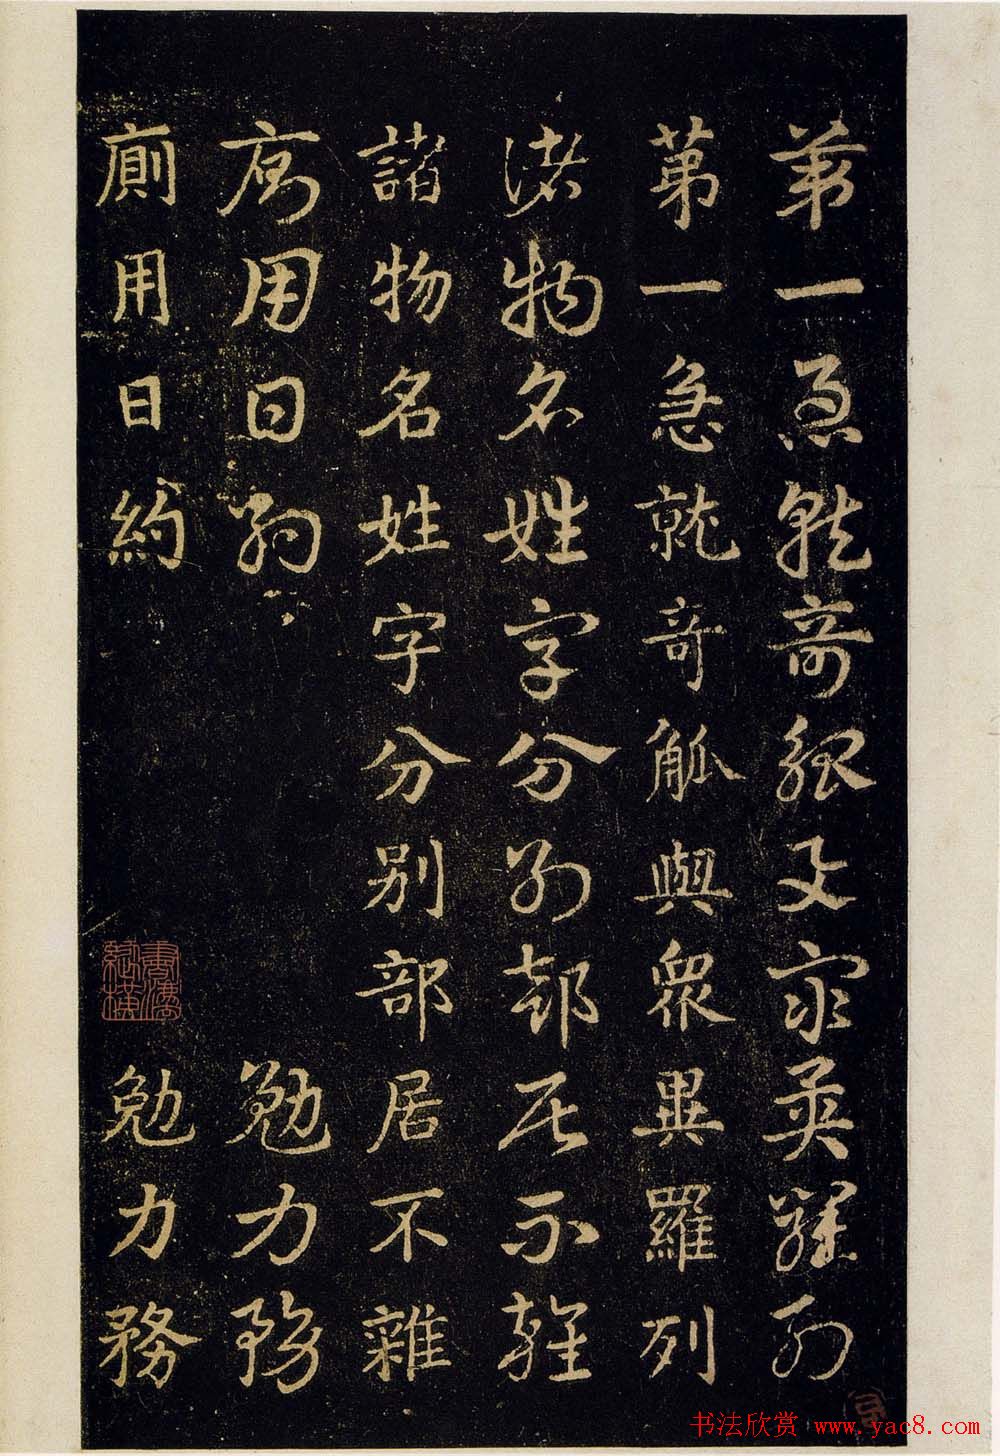 第一急就奇觚与众異羅列
第一急就奇觚與衆異羅列
諸物名姓字分别部居不雜
諸物名姓字分别部居不雜
廁用日約 勉力務
廁用日約 勉力務
书法欣赏 www.yac8.com